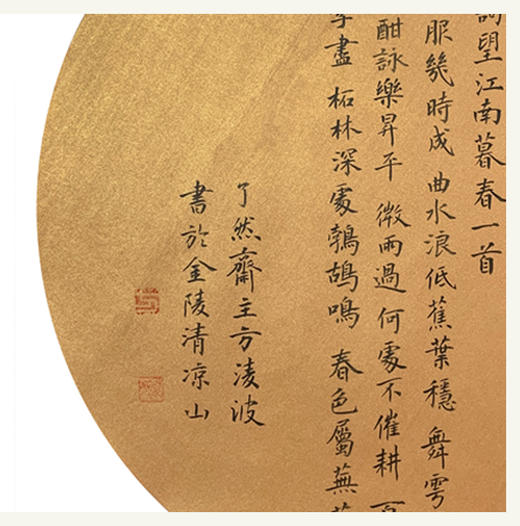 詞望江南暮春一首
服幾時成 曲水浪低蕉葉穩 舞雩
酣詠樂昇平 微雨過何處不催耕
李盡 柘林深處鵓鴣鳴 春色屬蕪
了然齋主方淩波
書於金陵清凉山